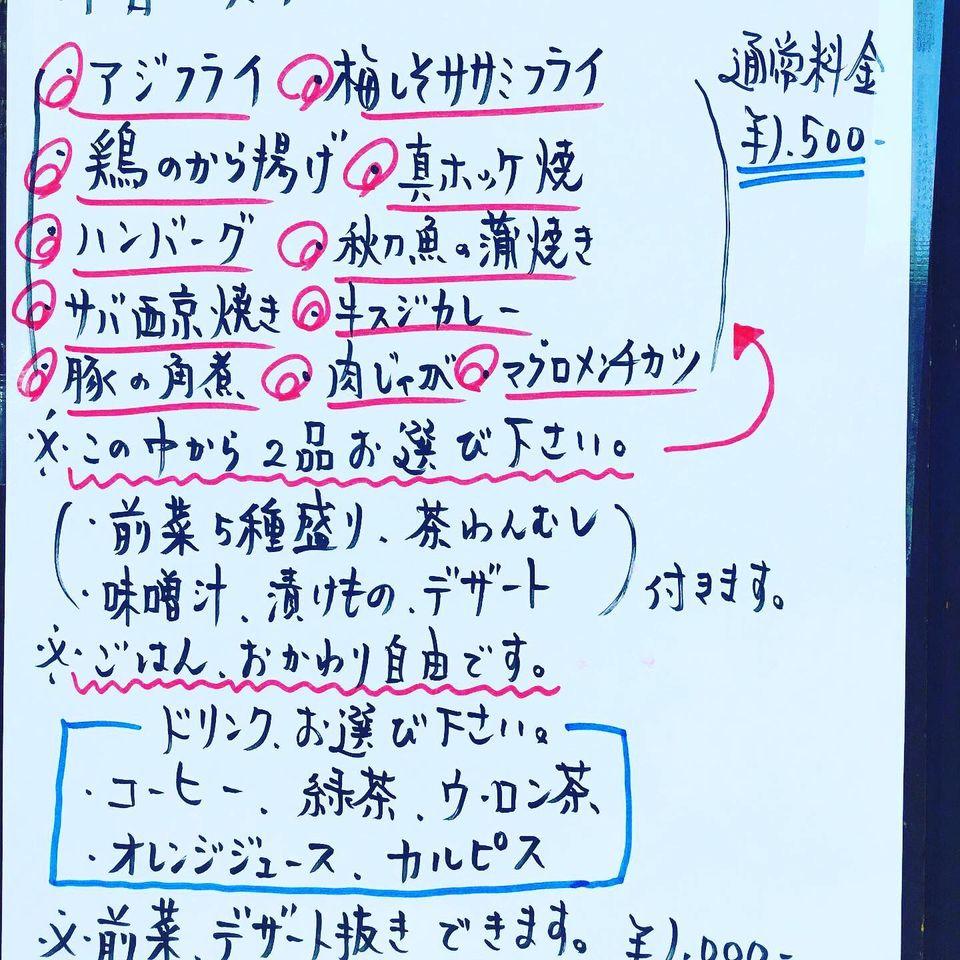 ・アジフライ ・梅しそササミフライ
通常料金
¥1.500-
・鶏のから揚げ ・真ホッケ焼
・ハンバーグ ・秋刀魚の蒲焼き
・サバ西京焼き ・牛スジカレー
・豚の角煮 ・肉じゃが ・マグロメンチカツ
※この中から2品お選び下さい。
(・前菜5種盛り、茶わんむし
・味噌汁、漬けもの、デザート) 付きます。
※ごはん、おかわり自由です。
ドリンク、お選び下さい。
・コーヒー、緑茶、ウーロン茶、
・オレンジジュース、カルピス
※前菜、デザート抜きできます。 ¥1,000-